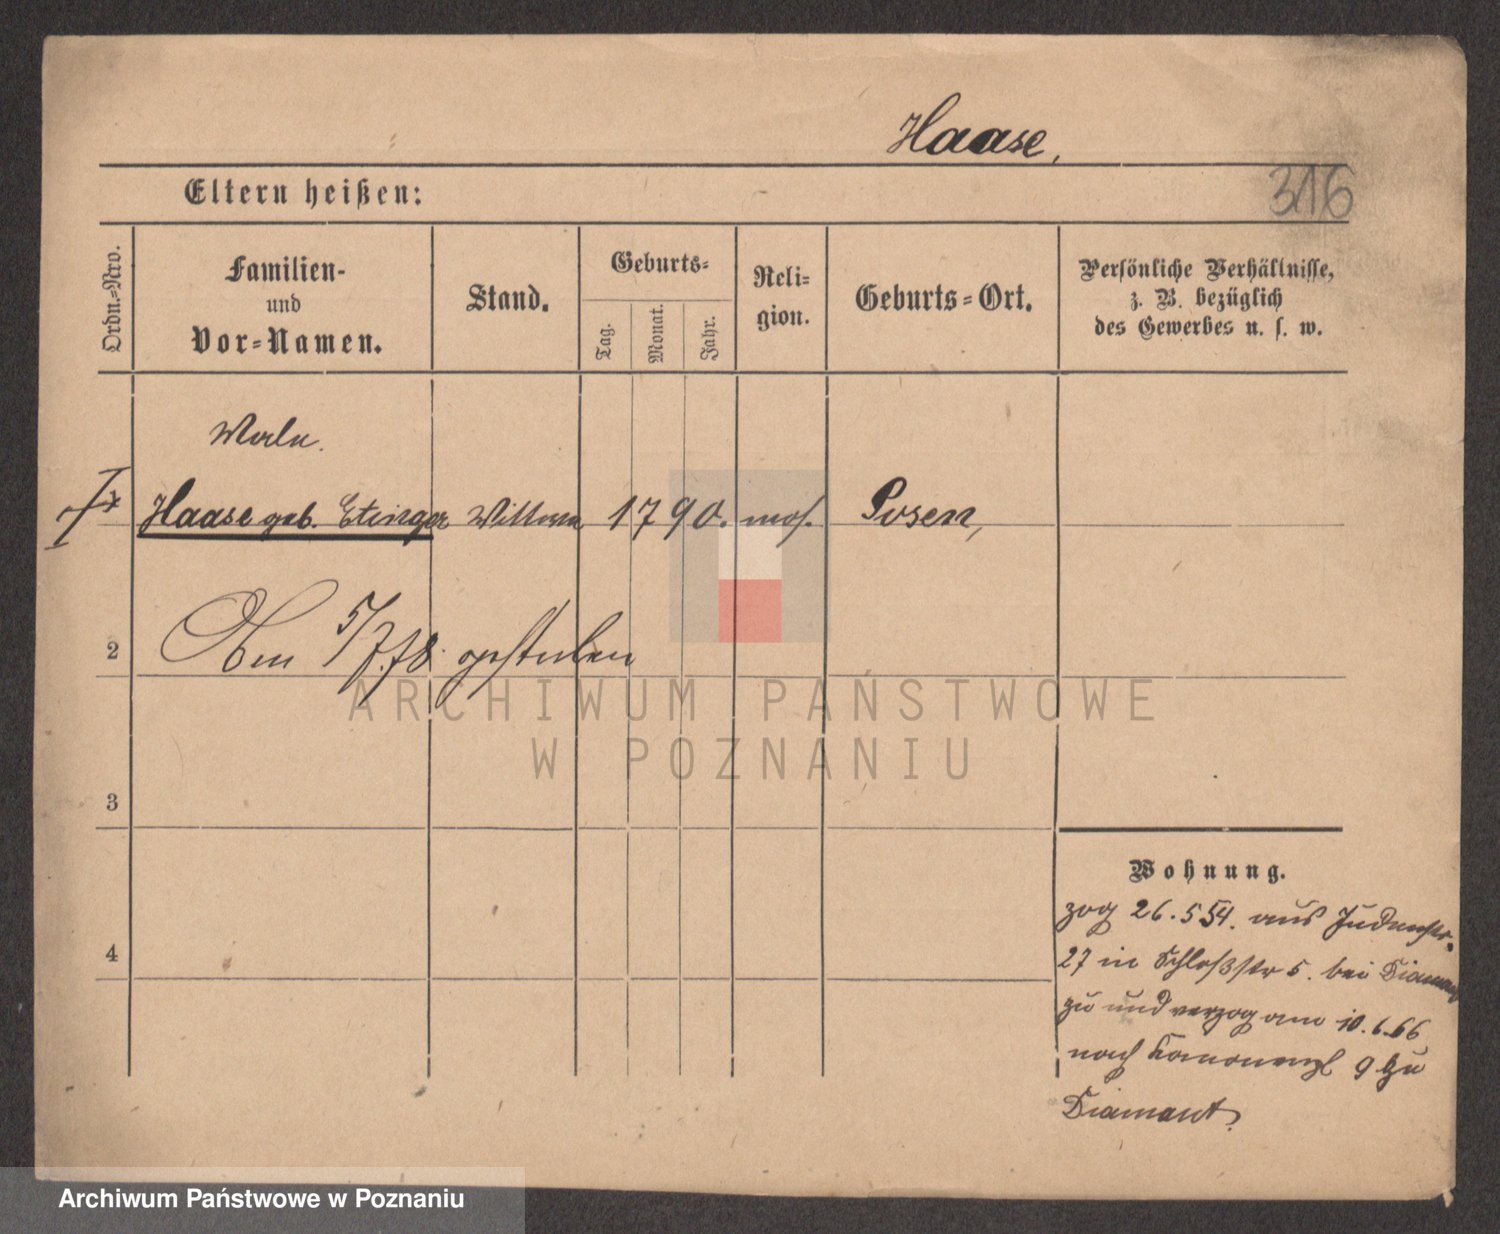 Haase,
316
Eltern heißen:
Ordn.-Nro.
Familien-
und
Vor-Namen.
Stand.
Geburts-
Tag.
Monat.
Jahr.
Reli-
gion.
Geburts-Ort.
Persönliche Verhältnisse,
z. B. bezüglich
des Gewerbes u. s. w.
Haase geb. Etinger Wittwe 1790. mos. Posen,
2
5/7.78. gestorben
ARCHIWUM PAŃSTWOWE
W POZNANIU
3
Wohnung.
zog 26.5 54. aus Judenstr.
27 in Schloßstr 5. bei
zu und verzog am 10.6.66
nach 9 zu
Diamant.
4
Archiwum Państwowe w Poznaniu